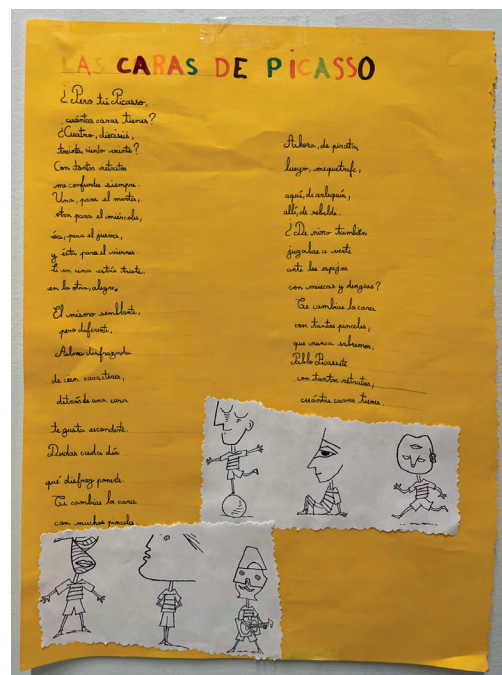 LAS CARAS DE PICASSO
¿Pero tú Picasso,
cuántas caras tienes?
¿Cuatro, dieciséis,
treinta, ciento veinte?
Con tantos retratos
me confundes siempre.
Una, para el martes,
otra para el miércoles,
ésa, para el jueves,
y ésta para el viernes.
en una estás triste
en la otra, alegre.
El mismo semblante,
pero diferente,
Alma disfrazada
de cien caracteres,
detrás de una cara
te gusta esconderte.
Dudas cada día
qué disfraz ponerte
Te cambias la cara
con muchos pinceles.
Ahora, de pirata,
luego, mequetrefe,
aquí, de arlequín,
allí, de rebelde.
¿De nino también
jugabas a verte
ante los espejos
con muecas y dengues?
Te cambias la cara
con tantos pinceles,
que nunca sabremos,
Pablo Picassete
con tantos retratos,
cuántas caras tienes.